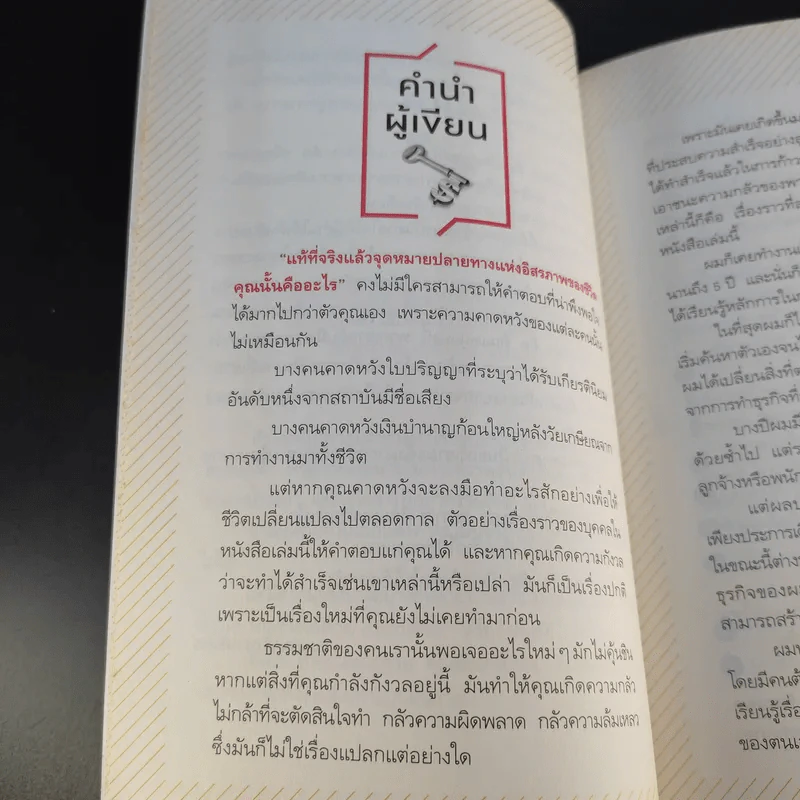 คำนำ
ผู้เขียน
“แท้ที่จริงแล้วจุดหมายปลายทางแห่งอิสรภาพของชีวิต
คุณนั้นคืออะไร” คงไม่มีใครสามารถให้คำตอบที่น่าพึงพอใจ
ได้มากไปกว่าตัวคุณเอง เพราะความคาดหวังของแต่ละคนนั้น
ไม่เหมือนกัน
บางคนคาดหวังใบปริญญาที่ระบุว่าได้รับเกียรตินิยม
อันดับหนึ่งจากสถาบันมีชื่อเสียง
บางคนคาดหวังเงินบำนาญก้อนใหญ่หลังวัยเกษียณจาก
การทำงานมาทั้งชีวิต
แต่หากคุณคาดหวังจะลงมือทำอะไรสักอย่างเพื่อให้
ชีวิตเปลี่ยนแปลงไปตลอดกาล ตัวอย่างเรื่องราวของบุคคลใน
หนังสือเล่มนี้ให้คำตอบแก่คุณได้ และหากคุณเกิดความกังวล
ว่าจะทำได้สำเร็จเช่นเขาเหล่านี้หรือเปล่า มันก็เป็นเรื่องปกติ
เพราะเป็นเรื่องใหม่ที่คุณยังไม่เคยทำมาก่อน
ธรรมชาติของคนเรานั้นพอเจออะไรใหม่ ๆ มักไม่คุ้นชิน
หากแต่สิ่งที่คุณกำลังกังวลอยู่นี้ มันทำให้คุณเกิดความกลัว
ไม่กล้าที่จะตัดสินใจทำ กลัวความผิดพลาด กลัวความล้มเหลว
ซึ่งมันก็ไม่ใช่เรื่องแปลกแต่อย่างใด
เพราะมันเคยเกิดขึ้นม
ที่ประสบความสำเร็จอย่าง
ได้ทำสำเร็จแล้วในการก้าว
เอาชนะความกลัวของพว
เหล่านี้ก็คือ เรื่องราวที่
หนังสือเล่มนี้
ผมก็เคยทำงาน
นานถึง 5 ปี และนั่นก็
ได้เรียนรู้หลักการใน
ในที่สุดผมก็
เริ่มค้นหาตัวเองจน
ผมได้เปลี่ยนสิ่งที่
จากการทำธุรกิจที่
บางปีผมมี
ด้วยซ้ำไป แต่
ลูกจ้างหรือพนัก
แต่ผล
เพียงประการ
ในขณะนี้ต่าง
ธุรกิจของผ
สามารถสร้า
ผม
โดยมีคนต้
เรียนรู้เรื่อ
ของตนเ